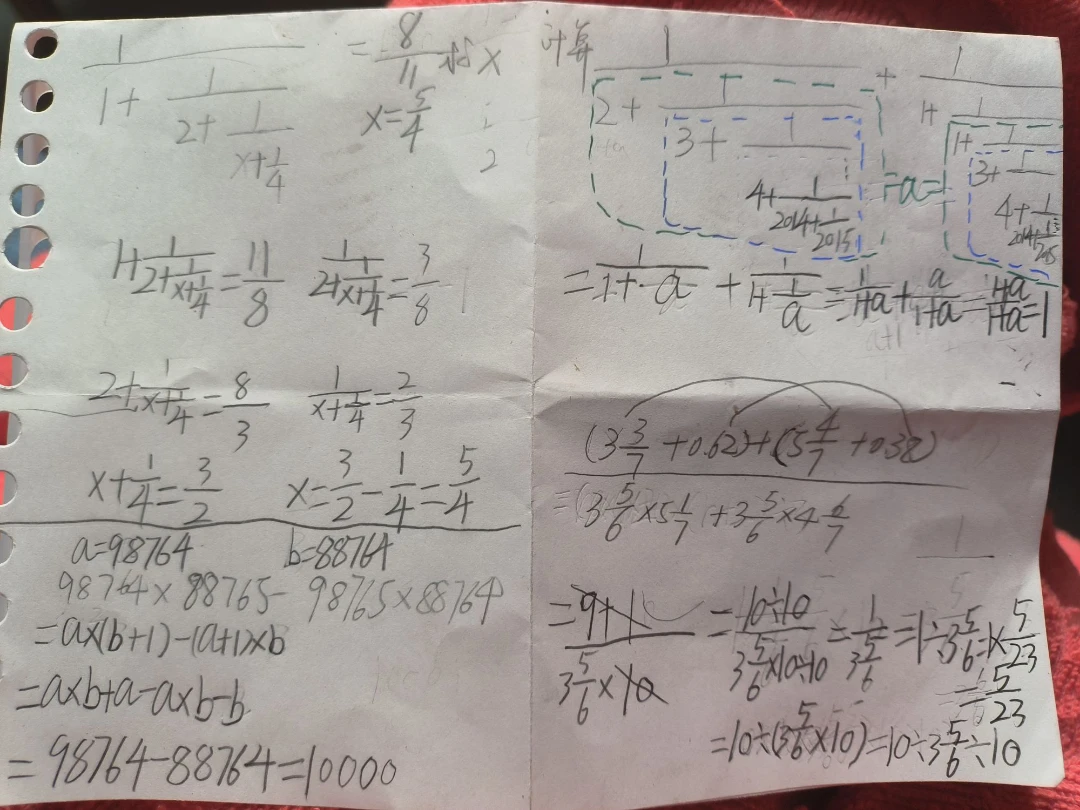 1/(1+1/(2+1/(x+1/4))) = 8/11 求x
x=5/4
1+1/(2+1/(x+1/4))=11/8 1/(2+1/(x+1/4))=3/8
2+1/(x+1/4)=8/3 1/(x+1/4)=2/3
x+1/4=3/2 x=3/2-1/4=5/4
a=98764 b=88764
98764×88765-98765×88764
=a×(b+1)-(a+1)×b
=a×b+a-a×b-b
=98764-88764=10000
计算 1/(2+1/(3+1/(…4+1/(2014+1/2015)))) + 1/(1+1/(1+1/(3+1/(…4+1/(2014+1/2015)))))
=a=
=1/(1+a) + 1/(1+1/a)=1/(1+a)+a/(1+a)=(1+a)/(1+a)=1
(3 3/7 +0.62)+(5 4/7 +0.38)
=(3 5/6 ×5 1/7)+3 5/6 ×4 6/7
=(9+1)/(3 5/6 ×10) =(10÷10)/(3 5/6 ×10÷10)=1/(3 5/6)=1÷3 5/6=1×5/23
=5/23
=10÷(3 5/6 ×10)=10÷3 5/6 ÷10